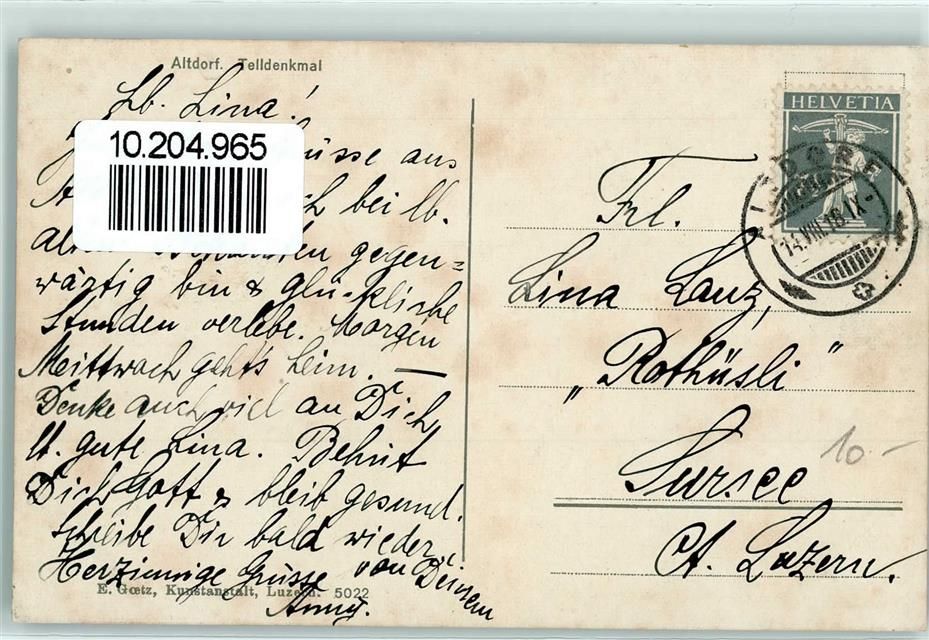 Altdorf. Telldenkmal
Lb. Lina!
10.204.965
aus
bei lb.
gegen=
wärtig bin & glückliche
Stunden verlebe. Morgen
Mittwoch geht's heim. —
Denke auch viel an Dich,
lb. gute Lina. Behüt
Dich Gott & bleib gesund.
Schreibe Dir bald wieder.
Herzinnige Grüsse von Deinem
Anny.
E. Gœtz, Kunstanstalt, Luzern. 5022
HELVETIA
ALTDORF
14.VIII.18.IX-
Frl.
Lina Lanz,
„Rothüsli"
Sursee
Ct. Luzern.
10.-